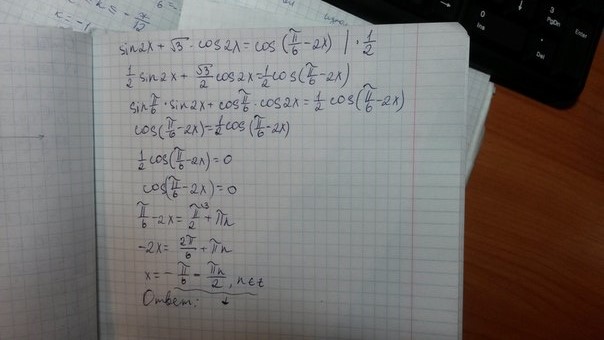 sin2x + √3 · cos2x = cos (π/6 - 2x) | · 1/2
1/2 sin2x + √3/2 cos2x = 1/2 cos(π/6 - 2x)
sin π/6 · sin2x + cos π/6 · cos2x = 1/2 cos(π/6 - 2x)
cos(π/6 - 2x) = 1/2 cos(π/6 - 2x)
1/2 cos(π/6 - 2x) = 0
cos(π/6 - 2x) = 0
π/6 - 2x = π/2 \3 + πn
-2x = 2π/6 + πn
x = - π/6 - πn/2, n∈z
Ответ: